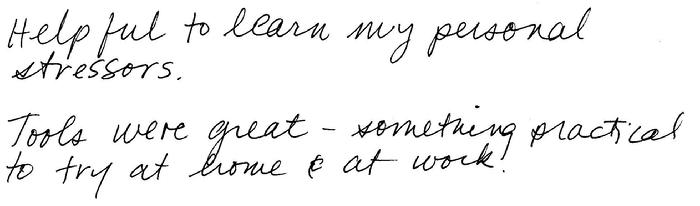 Helpful to learn my personal
stressors.
Tools were great – something practical
to try at home & at work!